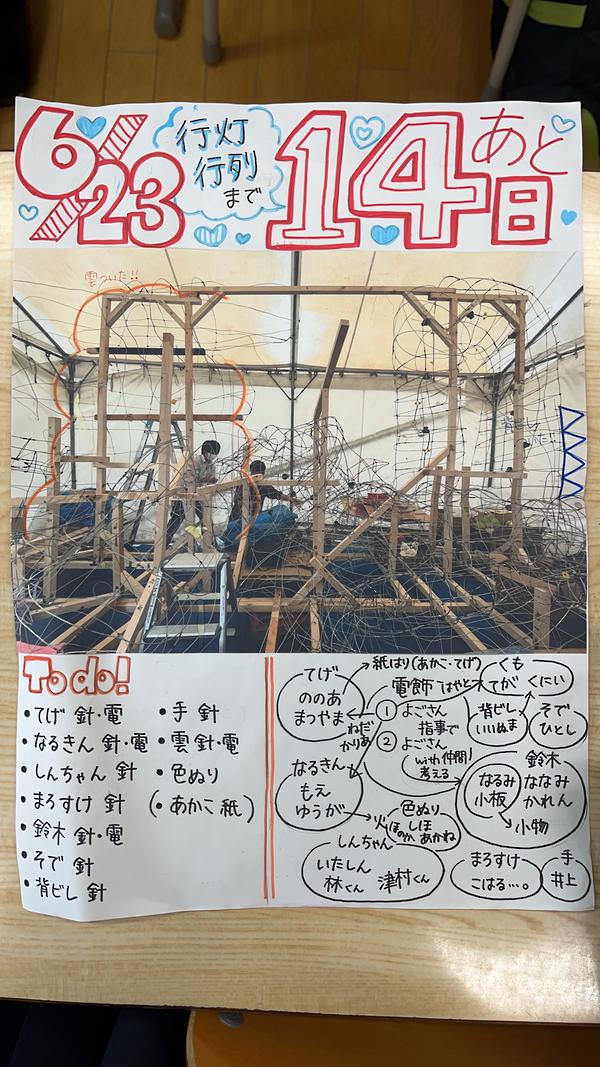 6/23
行灯
行列
まで
あと
14日
雲ついた!!
背ビレ
To do!
・てげ 針・電
・なるきん 針・電
・しんちゃん 針
・まろすけ 針
・鈴木 針・電
・そで 針
・背ビレ 針
・手 針
・雲 針・電
・色ぬり
(・あかこ 紙)
てげ
ののあ
まつやま
紙はり(あかこ・てげ)
電飾 はやと
① よごさん
指事で
② よごさん
with 仲間
考える
ねだ
かりあ
くも
てが
くにい
背ビレ
いいぬま
そで
ひとし
なるきん
もえ
ゆうが
火
色ぬり
しほ
ほのか あかね
鈴木
なるみ
小板
ななみ
かれん
小物
しんちゃん
いたしん
林くん 津村くん
まろすけ
こはる…。
手
井上